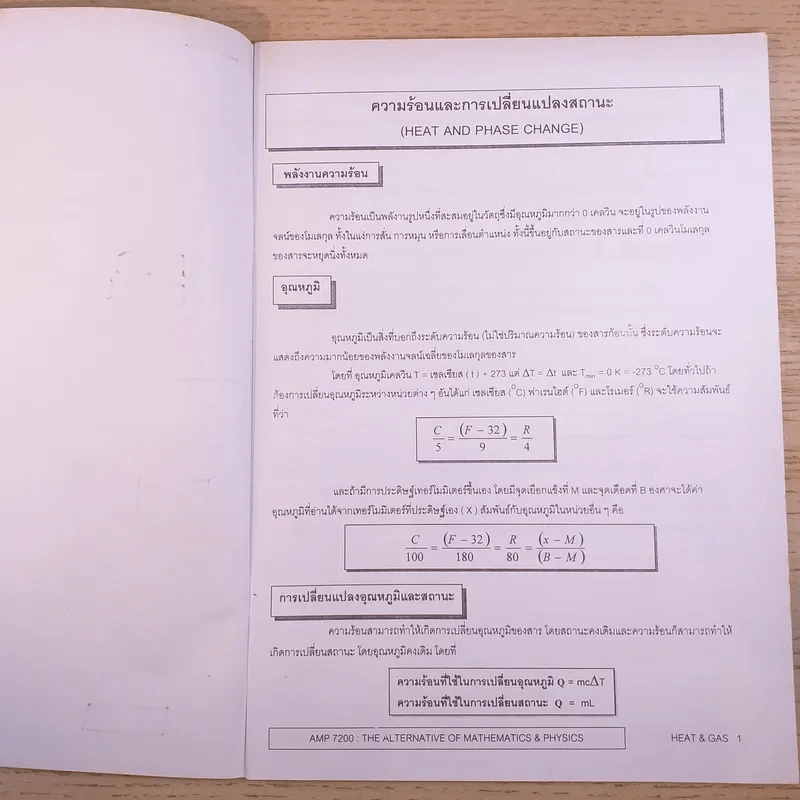 ความร้อนและการเปลี่ยนแปลงสถานะ
(HEAT AND PHASE CHANGE)
พลังงานความร้อน
ความร้อนเป็นพลังงานรูปหนึ่งที่สะสมอยู่ในวัตถุซึ่งมีอุณหภูมิมากกว่า 0 เคลวิน จะอยู่ในรูปของพลังงาน
จลน์ของโมเลกุล ทั้งในแง่การสั่น การหมุน หรือการเลื่อนตำแหน่ง ทั้งนี้ขึ้นอยู่กับสถานะของสารและที่ 0 เคลวินโมเลกุล
ของสารจะหยุดนิ่งทั้งหมด
อุณหภูมิ
อุณหภูมิเป็นสิ่งที่บอกถึงระดับความร้อน (ไม่ใช่ปริมาณความร้อน) ของสารก้อนนั้น ซึ่งระดับความร้อนจะ
แสดงถึงความมากน้อยของพลังงานจลน์เฉลี่ยของโมเลกุลของสาร
โดยที่ อุณหภูมิเคลวิน T = เซลเซียส ( t ) + 273 แต่ ΔT = Δt และ Tmin = 0 K = -273 °C โดยทั่วไปถ้า
ต้องการเปลี่ยนอุณหภูมิระหว่างหน่วยต่าง ๆ อันได้แก่ เซลเซียส (°C) ฟาเรนไฮต์ (°F) และโรเมอร์ (°R) จะใช้ความสัมพันธ์
ที่ว่า
C/5 = (F − 32)/9 = R/4
และถ้ามีการประดิษฐ์เทอร์โมมิเตอร์ขึ้นเอง โดยมีจุดเยือกแข็งที่ M และจุดเดือดที่ B องศาจะได้ค่า
อุณหภูมิที่อ่านได้จากเทอร์โมมิเตอร์ที่ประดิษฐ์เอง ( X ) สัมพันธ์กับอุณหภูมิในหน่วยอื่น ๆ คือ
C/100 = (F − 32)/180 = R/80 = (x − M)/(B − M)
การเปลี่ยนแปลงอุณหภูมิและสถานะ
ความร้อนสามารถทำให้เกิดการเปลี่ยนอุณหภูมิของสาร โดยสถานะคงเดิมและความร้อนก็สามารถทำให้
เกิดการเปลี่ยนสถานะ โดยอุณหภูมิคงเดิม โดยที่
ความร้อนที่ใช้ในการเปลี่ยนอุณหภูมิ Q = mcΔT
ความร้อนที่ใช้ในการเปลี่ยนสถานะ Q = mL
AMP 7200 : THE ALTERNATIVE OF MATHEMATICS & PHYSICS
HEAT & GAS 1